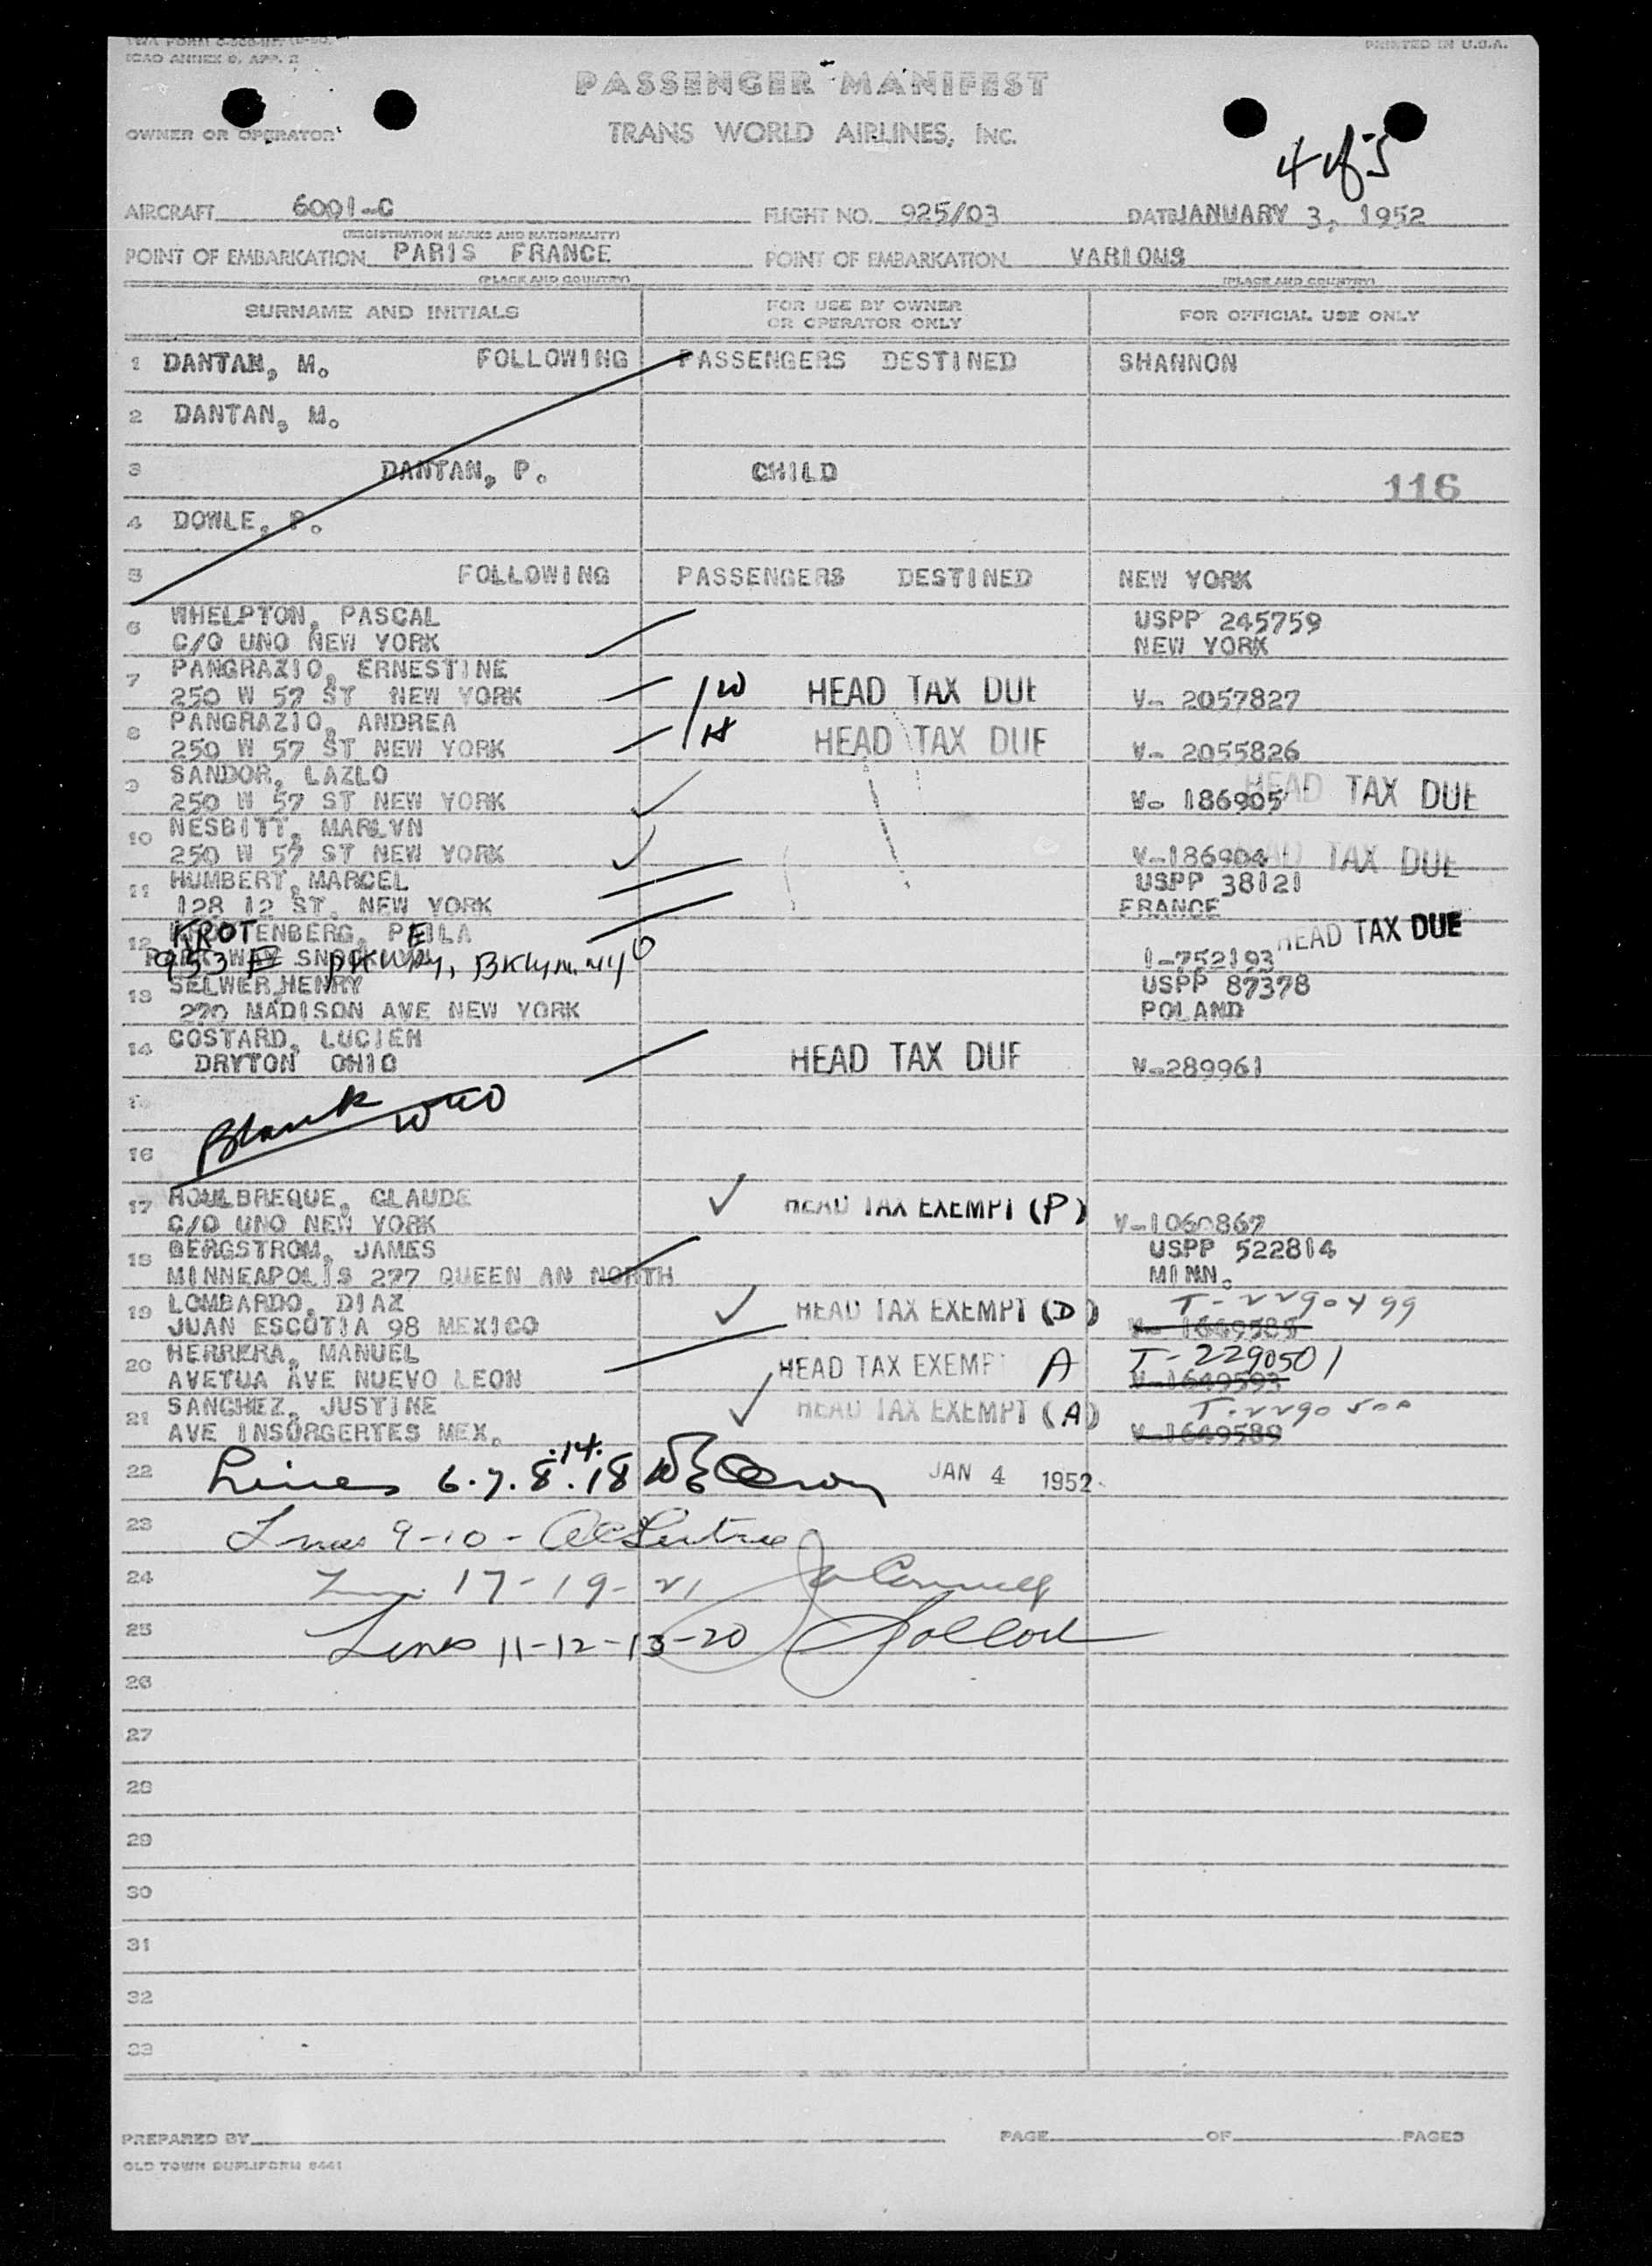 ICAO ANNEX 9, APP. 2
PRINTED IN U.S.A.
PASSENGER MANIFEST
OWNER OR OPERATOR
TRANS WORLD AIRLINES, INC.
4 of 5
AIRCRAFT 6001-C FLIGHT NO. 925/03 DATE JANUARY 3, 1952
(REGISTRATION MARKS AND NATIONALITY)
POINT OF EMBARKATION PARIS FRANCE POINT OF EMBARKATION VARIOUS
(PLACE AND COUNTRY) (PLACE AND COUNTRY)
SURNAME AND INITIALS FOR USE BY OWNER OR OPERATOR ONLY FOR OFFICIAL USE ONLY
1 DANTAN, M. FOLLOWING PASSENGERS DESTINED SHANNON
2 DANTAN, M.
3 DANTAN, P. CHILD 116
4 DOWLE, P.
5 FOLLOWING PASSENGERS DESTINED NEW YORK
6 WHELPTON, PASCAL USPP 245759
C/O UNO NEW YORK NEW YORK
7 PANGRAZIO, ERNESTINE
250 W 57 ST NEW YORK W HEAD TAX DUE V- 2057827
8 PANGRAZIO, ANDREA
250 W 57 ST NEW YORK H HEAD TAX DUE V- 2055826
9 SANDOR, LAZLO
250 W 57 ST NEW YORK V- 186905 HEAD TAX DUE
10 NESBITT, MARLYN
250 W 57 ST NEW YORK V-186904 HEAD TAX DUE
11 HUMBERT, MARCEL USPP 38121
128 12 ST. NEW YORK FRANCE
12 KROTENBERG, PEILA HEAD TAX DUE
953 E PKWAY, BKLYN. NY I-752193
13 SELWER, HENRY USPP 87378
270 MADISON AVE NEW YORK POLAND
14 COSTARD, LUCIEN
DRYTON OHIO HEAD TAX DUE V-289961
15 Blank
16
17 HOULBREQUE, CLAUDE HEAD TAX EXEMPT (P)
C/O UNO NEW YORK V-1060867
18 BERGSTROM, JAMES USPP 522814
MINNEAPOLIS 277 QUEEN AN NORTH MINN.
19 LOMBARDO, DIAZ HEAD TAX EXEMPT (D) T-2290499
JUAN ESCOTIA 98 MEXICO V- 1649585
20 HERRERA, MANUEL HEAD TAX EXEMPT A T-2290501
AVETUA AVE NUEVO LEON V-1649593
21 SANCHEZ, JUSTINE HEAD TAX EXEMPT (A) T-2290500
AVE INSORGERTES MEX. V-1649589
22 Lines 6.7.8.14.18 JAN 4 1952
23 Lines 9-10-
24 17-19-21
25 Lines 11-12-13-20
26
27
28
29
30
31
32
33
PREPARED BY PAGE OF PAGES
OLD TOWN DUPLIFORM 8441